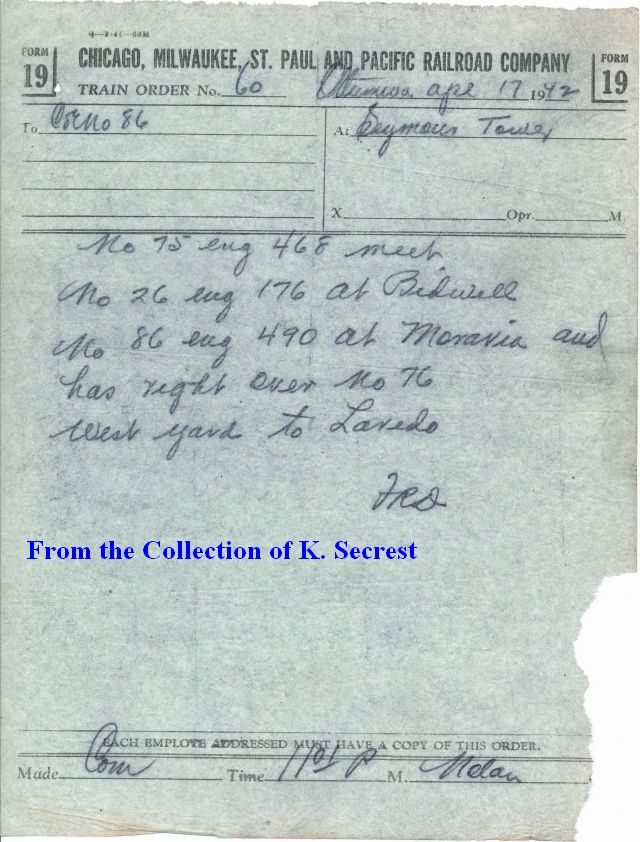 FORM 19
CHICAGO, MILWAUKEE, ST. PAUL AND PACIFIC RAILROAD COMPANY
FORM 19
TRAIN ORDER No. 60 Ottumwa Apl 17 1942
To C&E No 86
At Seymour Tower
X Opr. M.
No 75 eng 468 meet
No 26 eng 176 at Bidwell
No 86 eng 490 at Moravia and
has right over No 76
West yard to Laredo
From the Collection of K. Secrest
EACH EMPLOYE ADDRESSED MUST HAVE A COPY OF THIS ORDER.
Made Com Time 1101 P M. Nolan